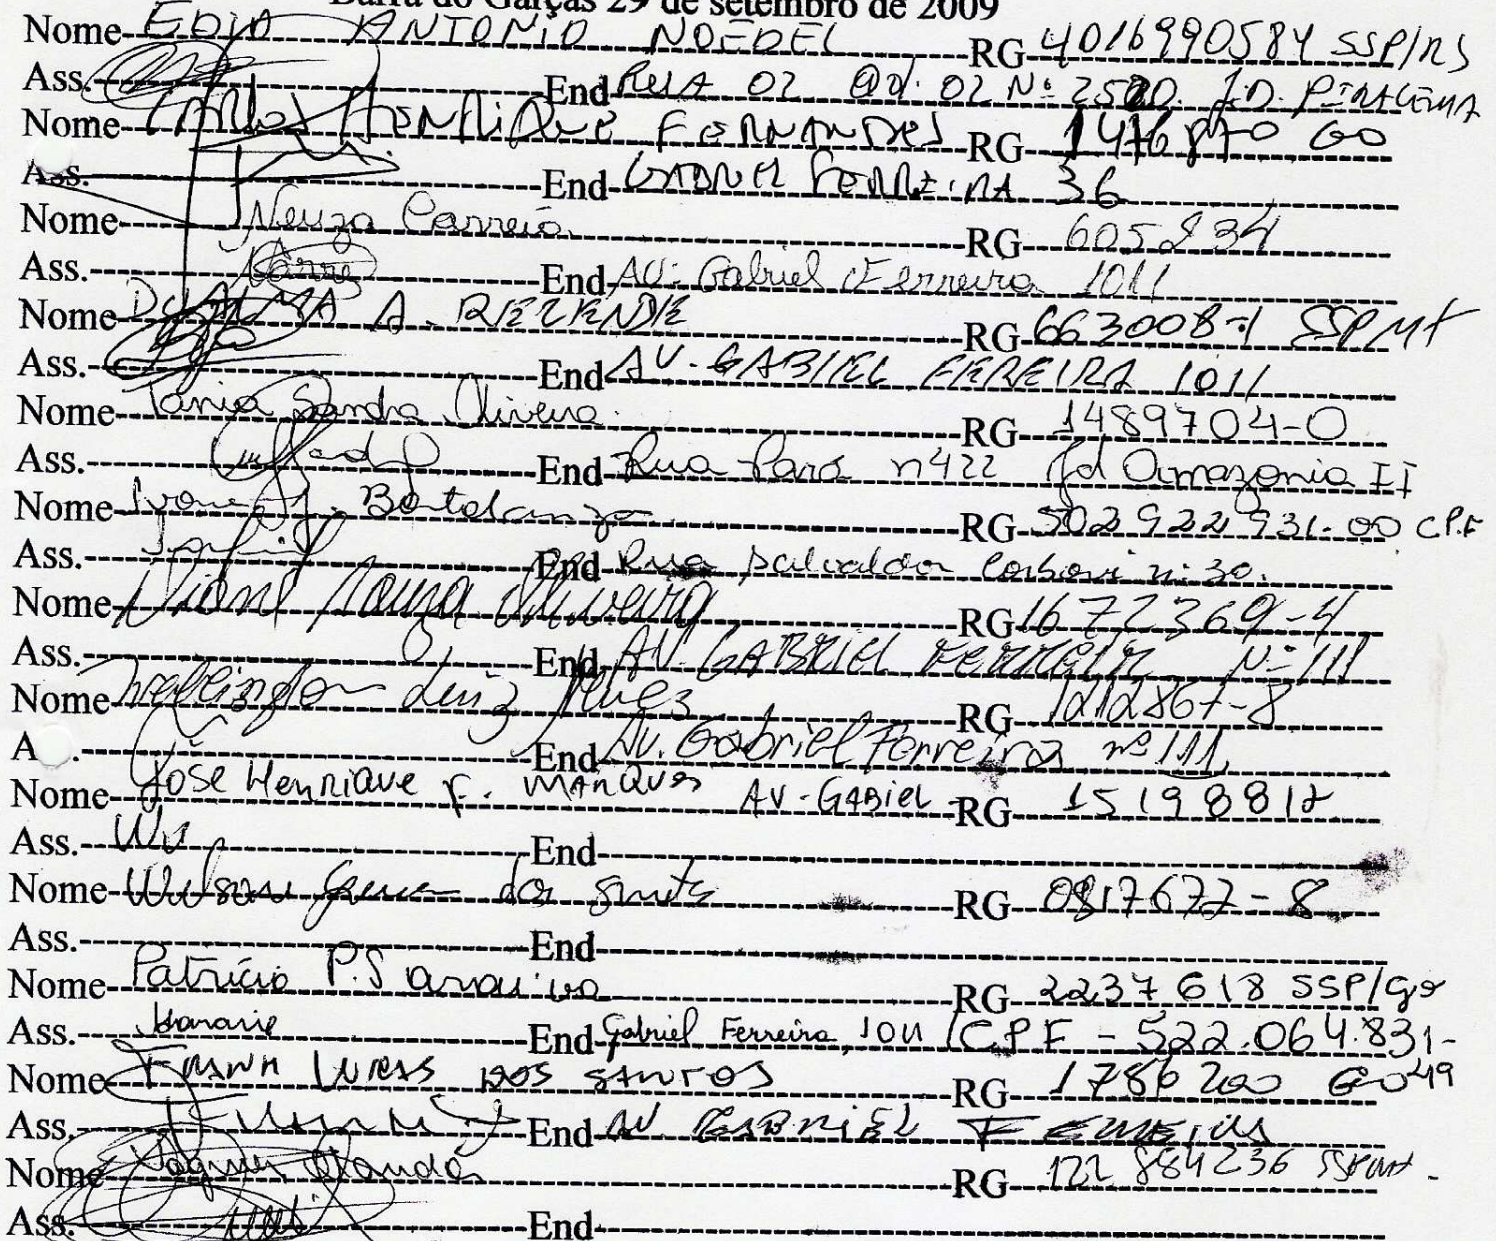 Barra do Garças 29 de setembro de 2009
Nome ANTONIO NOEDEL RG 4016990584 SSP/RS
Ass. End RUA 02 Qd. 02 Nº J.D. PIRACEMA
Nome CARLOS HENRIQUE FERNANDES RG 1476870 GO
Ass. End GABRIEL FERREIRA 36
Nome Neuza Carreia RG 605234
Ass. End AV. Gabriel Ferreira 1011
Nome DJALMA A. REZENDE RG 663008-1 SSPMT
Ass. End AV. GABIEL FEREIRA 1011
Nome Tania Sandra Oliveira RG 1489704-0
Ass. End Rua Pará n422 Jd Amazonia II
Nome Ivone J. Bortolanza RG 502922931-00 C.P.F
Ass. End Rua nº 30.
Nome Souza Oliveira RG 1672369-4
Ass. End AV. GABRIEL FERREIRA Nº 111
Nome Wellington Luiz Alves RG 1212867-8
A . End Av. Gabriel Ferreira nº 111
Nome José Henrique F. MARQUES AV-GABIEL RG 15198812
Ass. End
Nome dos RG 0817672-8
Ass. End
Nome Patrício P. Saraiva RG 2237618 SSP/GO
Ass. End Gabriel Ferreira, 1011 / CPF - 522.064.831-
Nome LUCAS DOS SANTOS RG 1786200 GO 49
Ass. End AV. GABRIEL
Nome Vagner RG 122 884236 SSPMT.
Ass. End